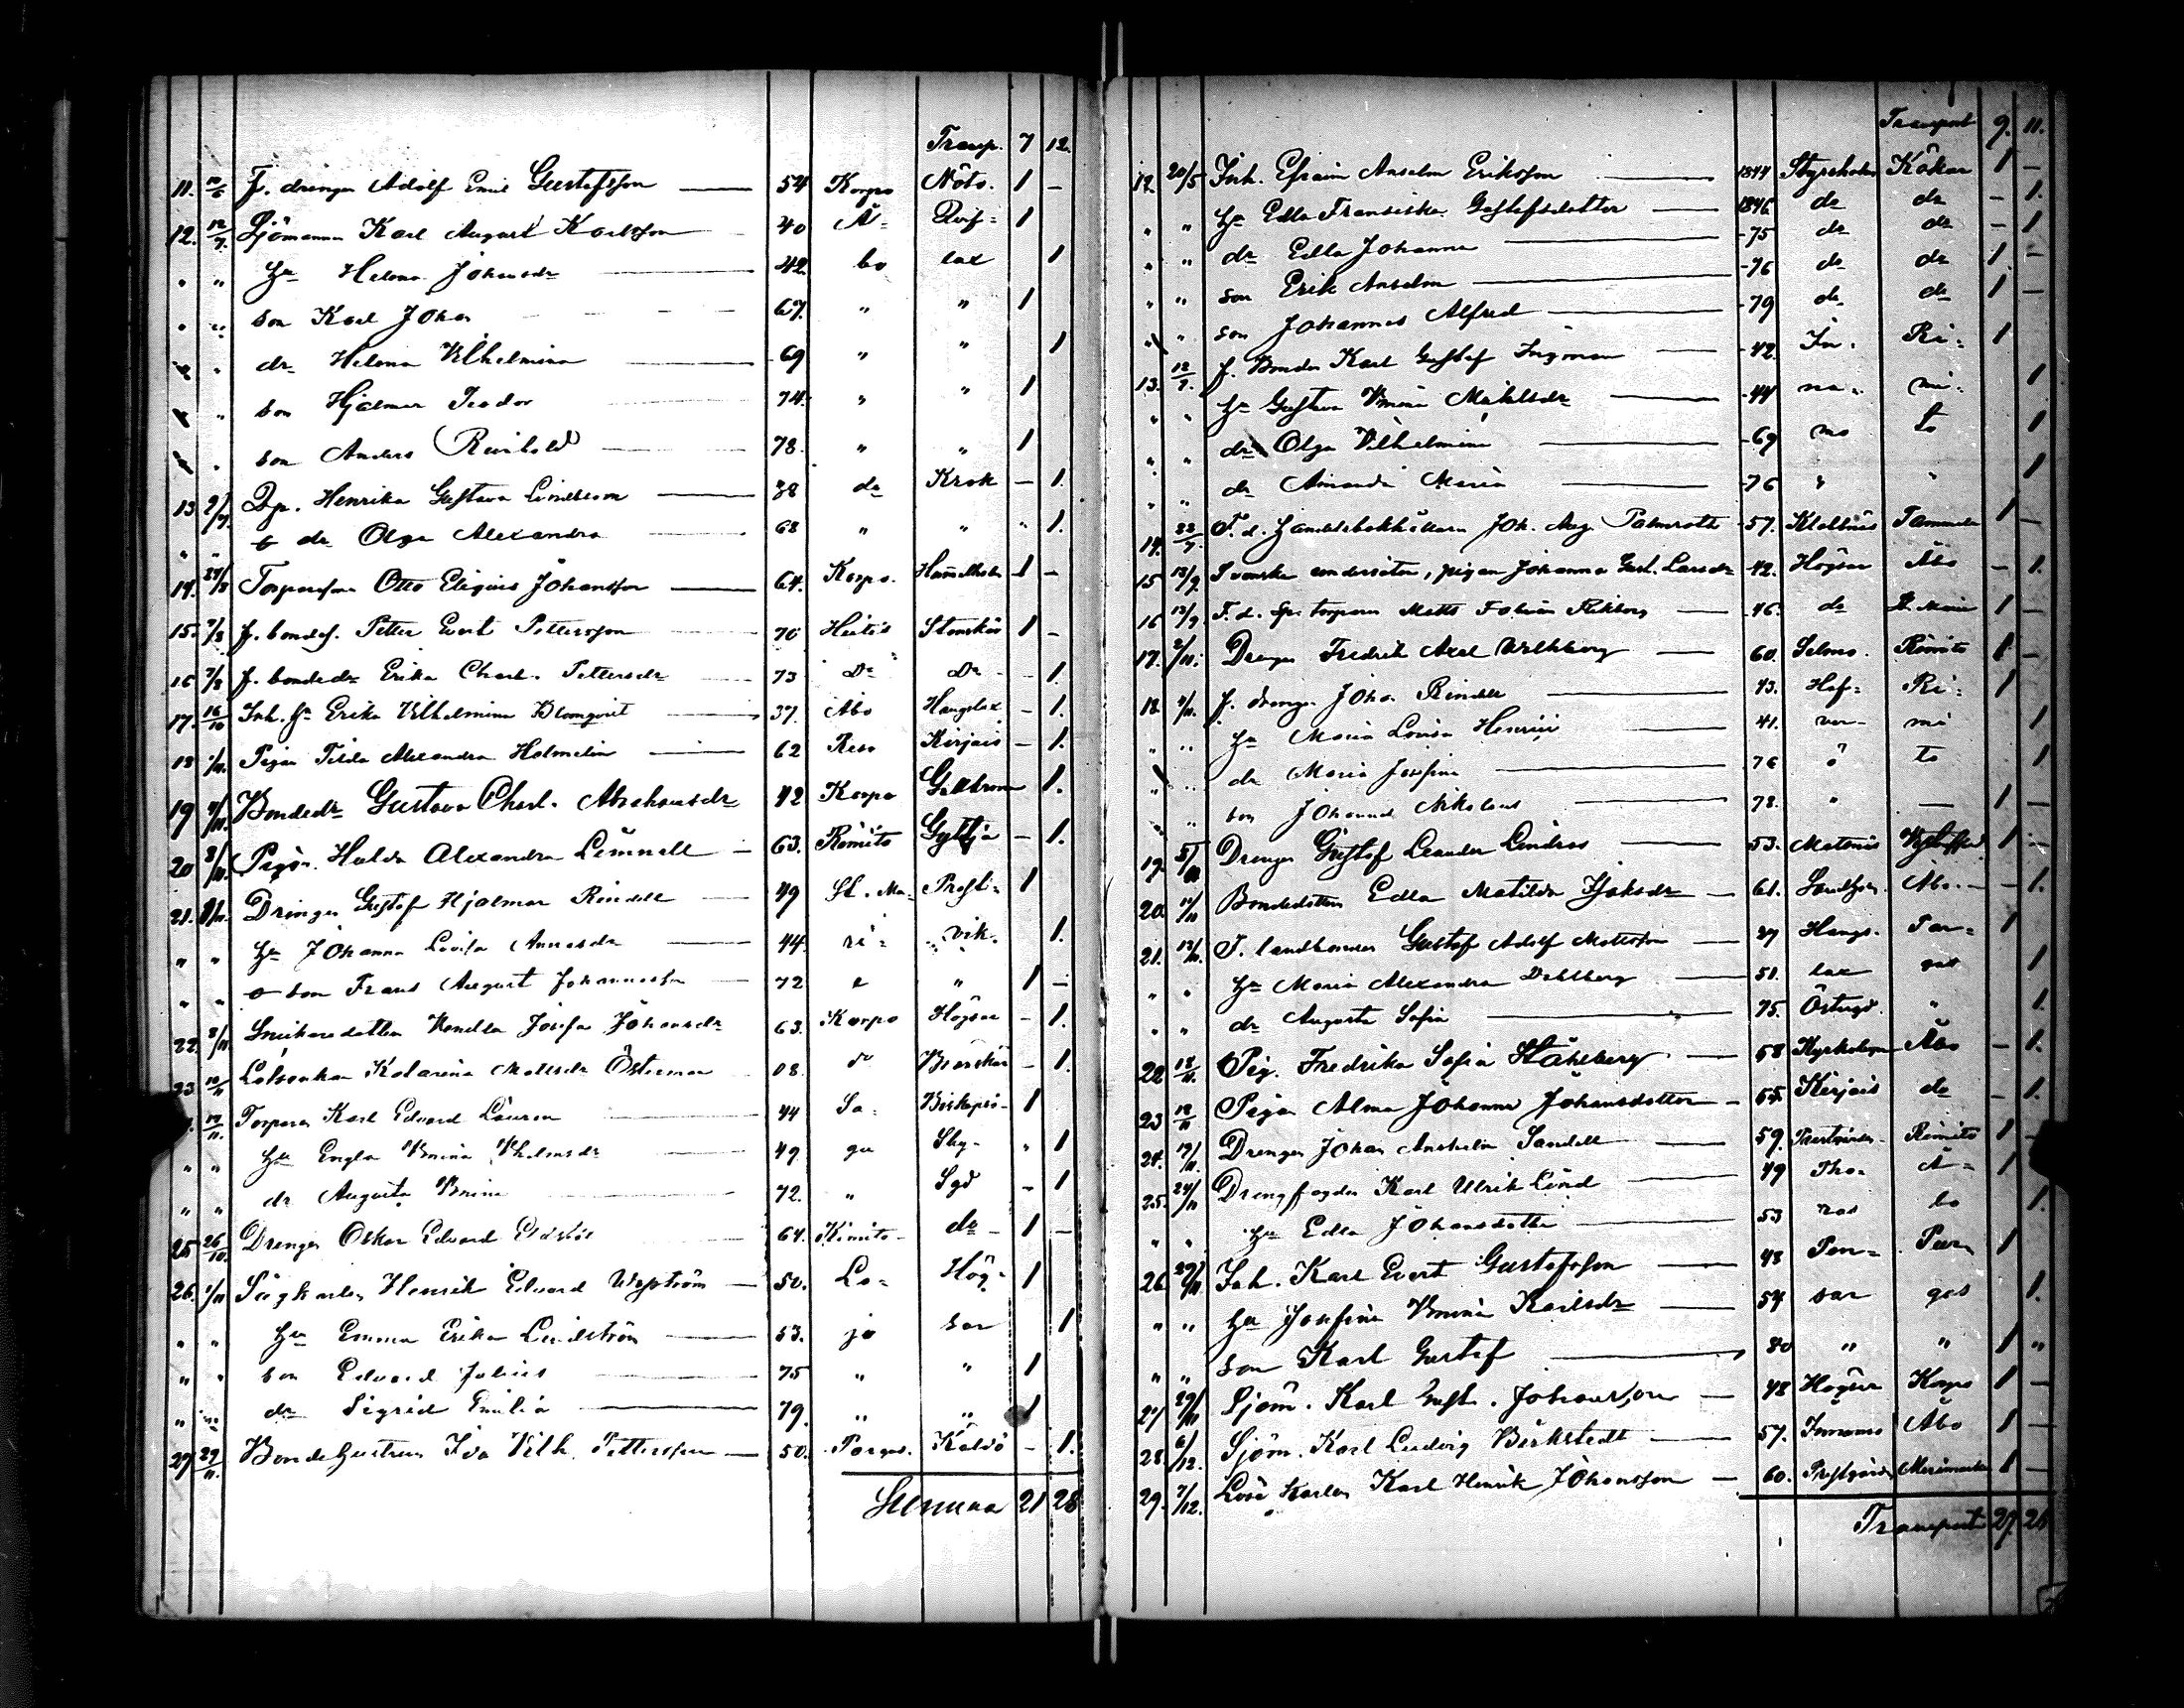 Transp. 7 12.
11. 10/6 F. drengen Adolf Emil Gustafsson 54 Korpo Nöto. 1 -
12. 12/7. Sjömannen Karl August Karlsson 40 Å- Qvif- 1
" " Hu Helena Johansdr 42 bo lax 1
" " son Karl Johan 67. " " 1
" " dr Helena Vilhelmina 69 " " 1
" " son Hjalmar Teodor 74. " " 1
" " son Anders Reinhold 78. " " 1
13 2/7. Henrika Gustava Lindblom 38 do Krok - 1.
" " dr Olga Alexandra 68 " " " 1.
14. 24/8 Torparson Otto Eligius Johansson 64. Korpo. 1 -
15. 7/8 f. bondes. Petter Evert Pettersson 70 Hitis Stenskär 1 -
16 7/8 f. bondedr Erika Charl. Pettersdr 73 Do Do - 1.
17. 16/10 Inh. Hu Erika Vilhelmina Blomqvist 37. Åbo Hangslax - 1.
18 1/11. Pigan Tilda Alexandra Holmelin 62 Reso Kirjais - 1.
19 4/11. Bondedr Gustava Charl. Abrahamsdr 42 Korpo 1.
20 8/11. Pigan Hulda Alexandra Lemnell 63. Rimito Gyttja - 1.
21. 8/11. Drengen Gustaf Hjalmar Rindell 49 St. Ma- Prosti- 1
" " Hu Johanna Lovisa Annasdr 44. ri- vik. 1.
" " son Frans August Johannesson 72 a " 1 -
22. 8/11 Snickaredotter Vendla Josefa Johansdr 63. Korpo Högsar - 1.
23 10/11 Katarina Mattsdr Österman 08. do Biskär - 1.
12/11. Torparen Karl Edvard Lauren 44 Sa- Biskopsö- 1
" " Hu Engla Vmina Vhelmsdr 49 gu Sky- " 1
" " dr Augusta Vmina 72. " Sgd - 1
25 26/10. Drengen Oskar Edvard 64. Kimito- do - 1 -
26. 1/11 Sågkarlen Henrik Edvard Wegström 50. Lo- Hög- 1
" " Hu Emma Erika Lindström 53. jo sar 1
" " son Edvard Julius 75 " " 1
" " dr Sigrid Emilia 79. " " 1
27 29/11. Bondehustrun Ida Vilh. Pettersson 50. Pargas. Kaldö - 1.
Summa 21 28
Transport 9. 11.
12. 20/5 Inh. Efraim Anselm Eriksson 1844 Styrsholm Kökar 1 -
" " Hu Edla Fransiska Gustafsdotter 1846 do do - 1.
" " dr Edla Johanna -75 do do - 1
" " son Erik Anselm -76 do do 1 -
" " son Johannes Alfred -79 do do 1 -
13. 12/7. f. Bonden Karl Gustaf Ingman -42. In- Ri- 1
" " Hu Gustava Vmina Mikelsdr -44 na- mi- 1
" " dr Olga Vilhelmina -69 mo to 1
" " dr Amanda Maria -76 " " 1
14. 22/7. F. d. Handelsbokhållaren Joh. Aug. Palmroth -57. Klobbnäs Tammela 1 -
15 13/9. Svenska undersåten, pigan Johanna Gust. Larsdr -42. Högsar Åbo - 1.
16 13/9 F. d. torparen Matts Fabian -46. do St. Marie 1 -
17. 2/11. Drengen Fredrik Axel Wikberg 60. Selmo. Rimito 1 -
18. 4/11. f. drengen Johan Rindell 43. Haf- Ri- 1
" " Hu Maria Lovisa Henrici 41. ver- mi 1
" " dr Maria Josefina 76 ö to 1
" " son Johannes Nikolaus 78. " — 1 -
19. 5/11 Drengen Gustaf Leander Lindros 53. Matnäs 1 -
20. 11/11 Bondedottern Edla Matilda Isaksdr 61. Sandholm. Åbo. - 1.
21. 12/11. F. landbonden Gustaf Adolf Mattsson 47 Hangs- Par- 1
" " Hu Maria Alexandra Dahlberg 51. lax gas 1
" " dr Augusta Sofia 75. Östergd. " 1.
22 12/11. Pig. Fredrika Sofia Ståhlberg 58 Kyrkobyn Åbo - 1.
23 12/11 Pigan Alma Johanna Johansdotter 65. Kirjais do - 1.
24. 19/11. Drengen Johan Anshelm Sandell 59. Prestgården Rimito 1 -
25. 24/11 Drengfogden Karl Ulrik Lind 49 Tho- Å- 1
" " Hu Edla Johansdotter 53 ras bo 1.
26. 29/11 Inh. Karl Evert Gustafsson 48 Pen- Par- 1
" " Hu Josefina Vmina Karlsdr 54 sar gas 1.
" " son Karl Gustaf 80 " " 1 "
27 29/11 Sjöm. Karl Gust. Johansson 48 Högsar Korpo 1 -
28. 6/12. Sjöm. Karl Ludvig Birkstedt 57. Innamo Åbo 1 -
29. 7/12. Löse karlen Karl Henrik Johansson 60. Prestgården Merimasku 1 -
Transport 27. 26